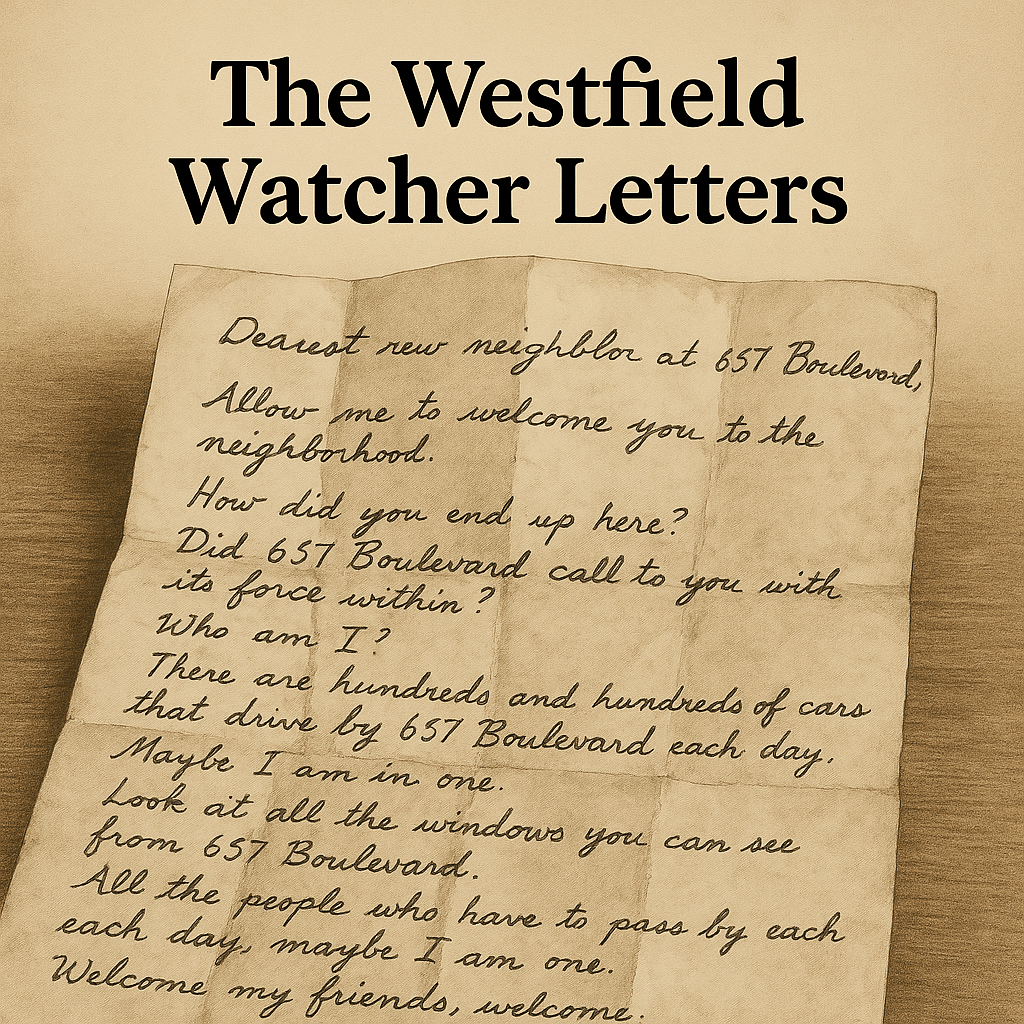 The Westfield
Watcher Letters
Dearest rew neighblor at 657 Boulevord,
Allow me to welcome you to the
neighborhood.
How did you end up here?
Did 657 Boulevard call to you with
its force within?
Who am I?
There are hundreds and hundreds of cars
that drive by 657 Boulevard each day.
Maybe I am in one.
Look at all the windows you can see
from 657 Boulevard.
All the people who have to pass by each
each day, maybe I am one.
Welcome my friends, welcome.